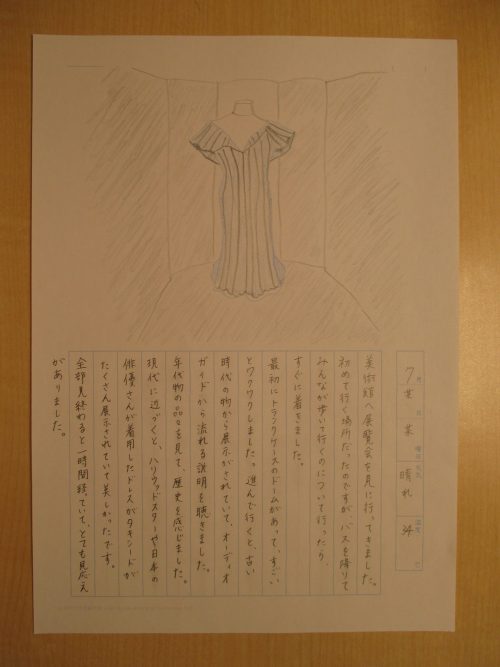 月 日 曜日 天気 温度 ℃
7 晴れ 34
美術館へ展覧会を見に行ってきました。
初めて行く場所だったのですが、バスを降りて
みんなが歩いて行くのについて行ったら、
すぐに着きました。
最初にトランクケースのドームがあって、すごい
とワクワクしました。進んで行くと、古い
時代の物から展示がされていて、オーディオ
ガイドから流れる説明を聴きました。
年代物の品々を見て、歴史を感じました。
現代に近づくと、ハリウッドスターや日本の
俳優さんが着用したドレスがタキシードが
たくさん展示されていて美しかったです。
全部見終わると一時間経っていて、とても見応え
がありました。